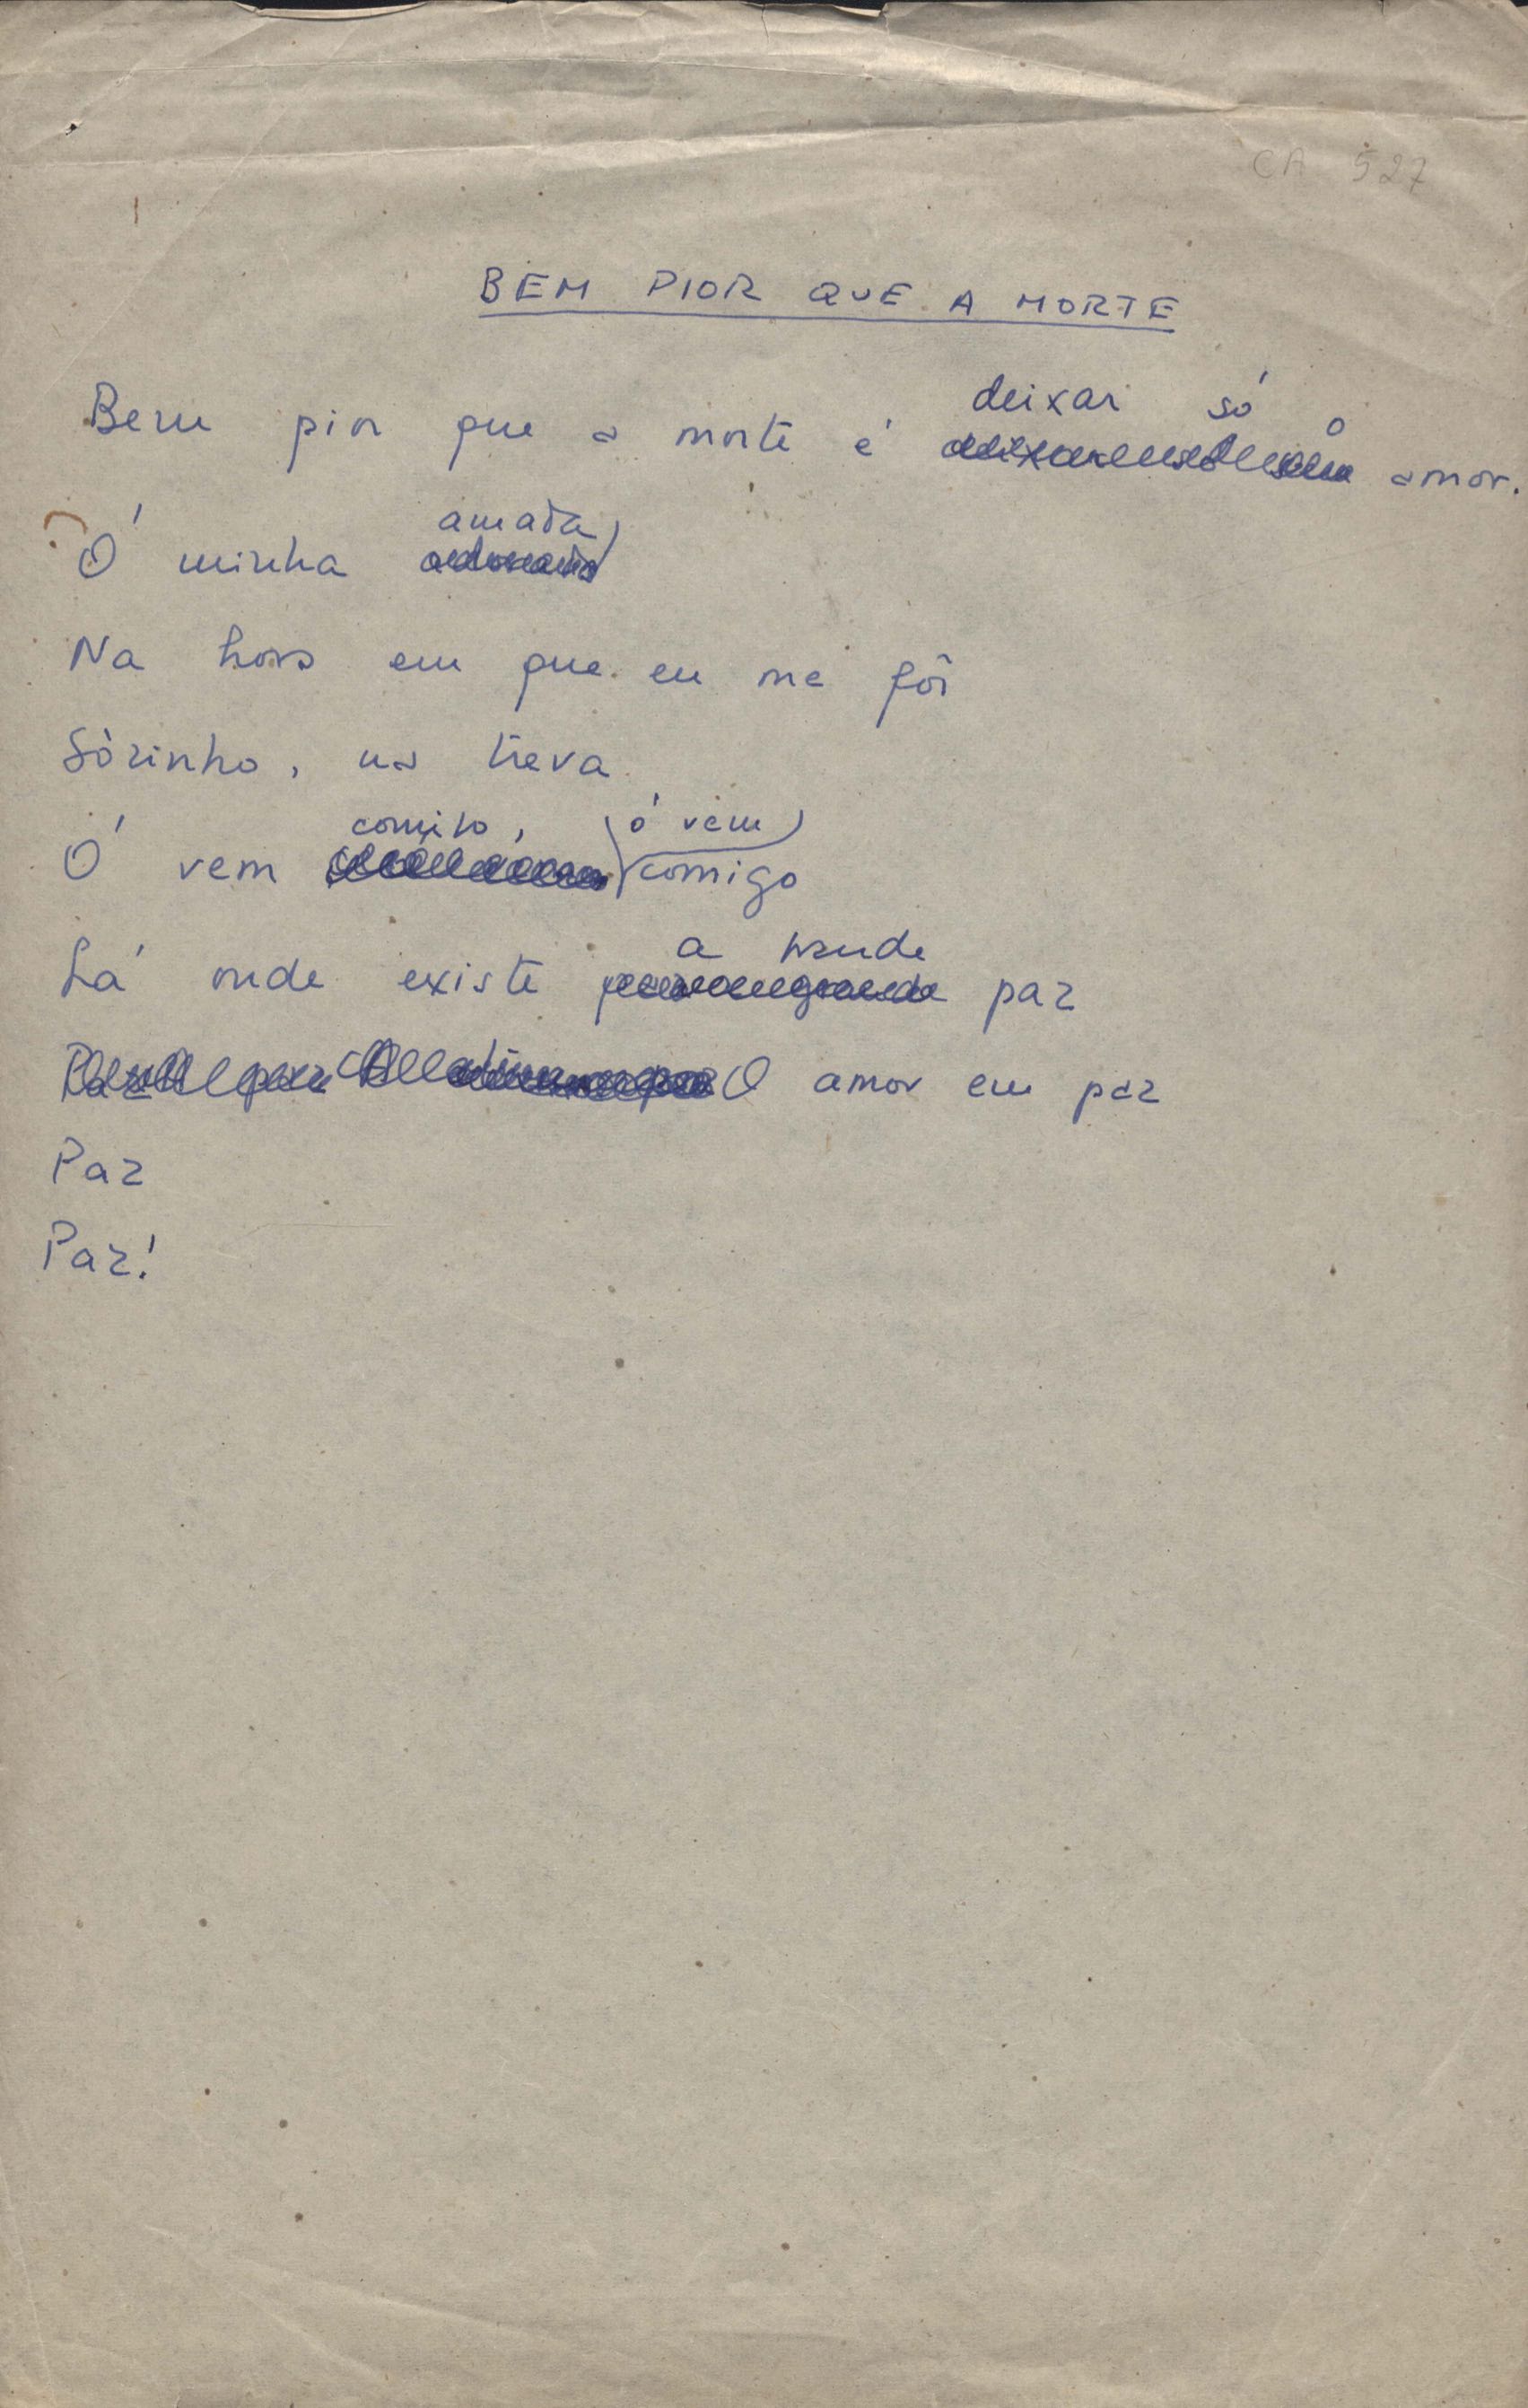 CA 527
BEM PIOR QUE A MORTE
deixar só o
Bem pior que a morte é amor.
amada
Ó minha
Na hora em que eu me fôr
Sòzinho, na treva
comigo, ó vem
Ó vem comigo
a grande
Lá onde existe paz
O amor em paz
Paz
Paz!